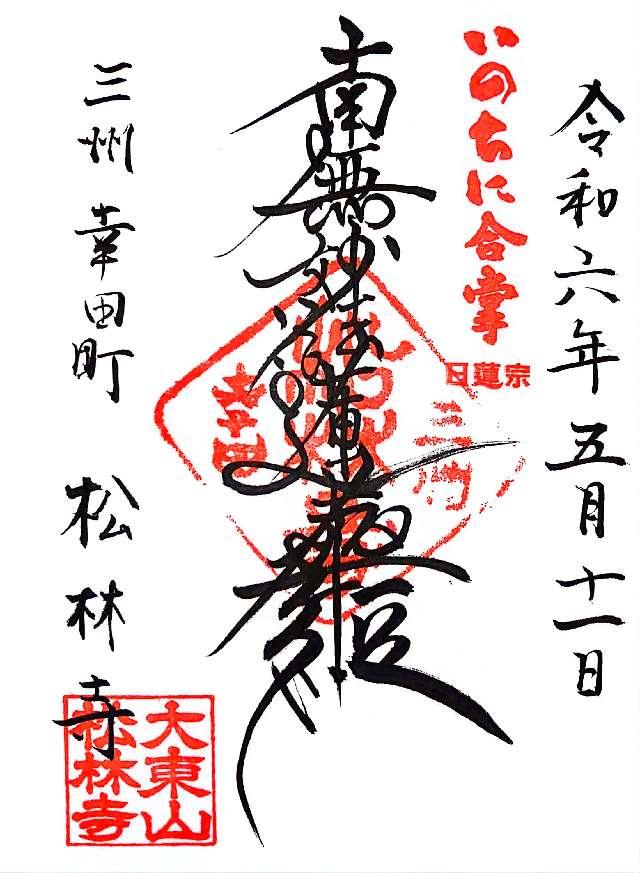 令和六年五月十一日
いのちに合掌
日蓮宗
南無妙法蓮華経
三州
幸田
三州 幸田町 松林寺
大東山
松林寺